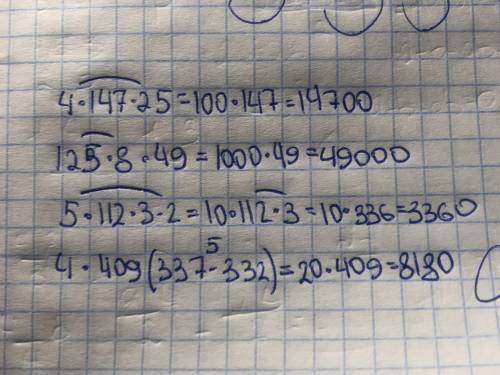 4·147·25=100·147=14700
125·8·49=1000·49=49000
5·112·3·2=10·112·3=10·336=3360
5
4·409(337-332)=20·409=8180